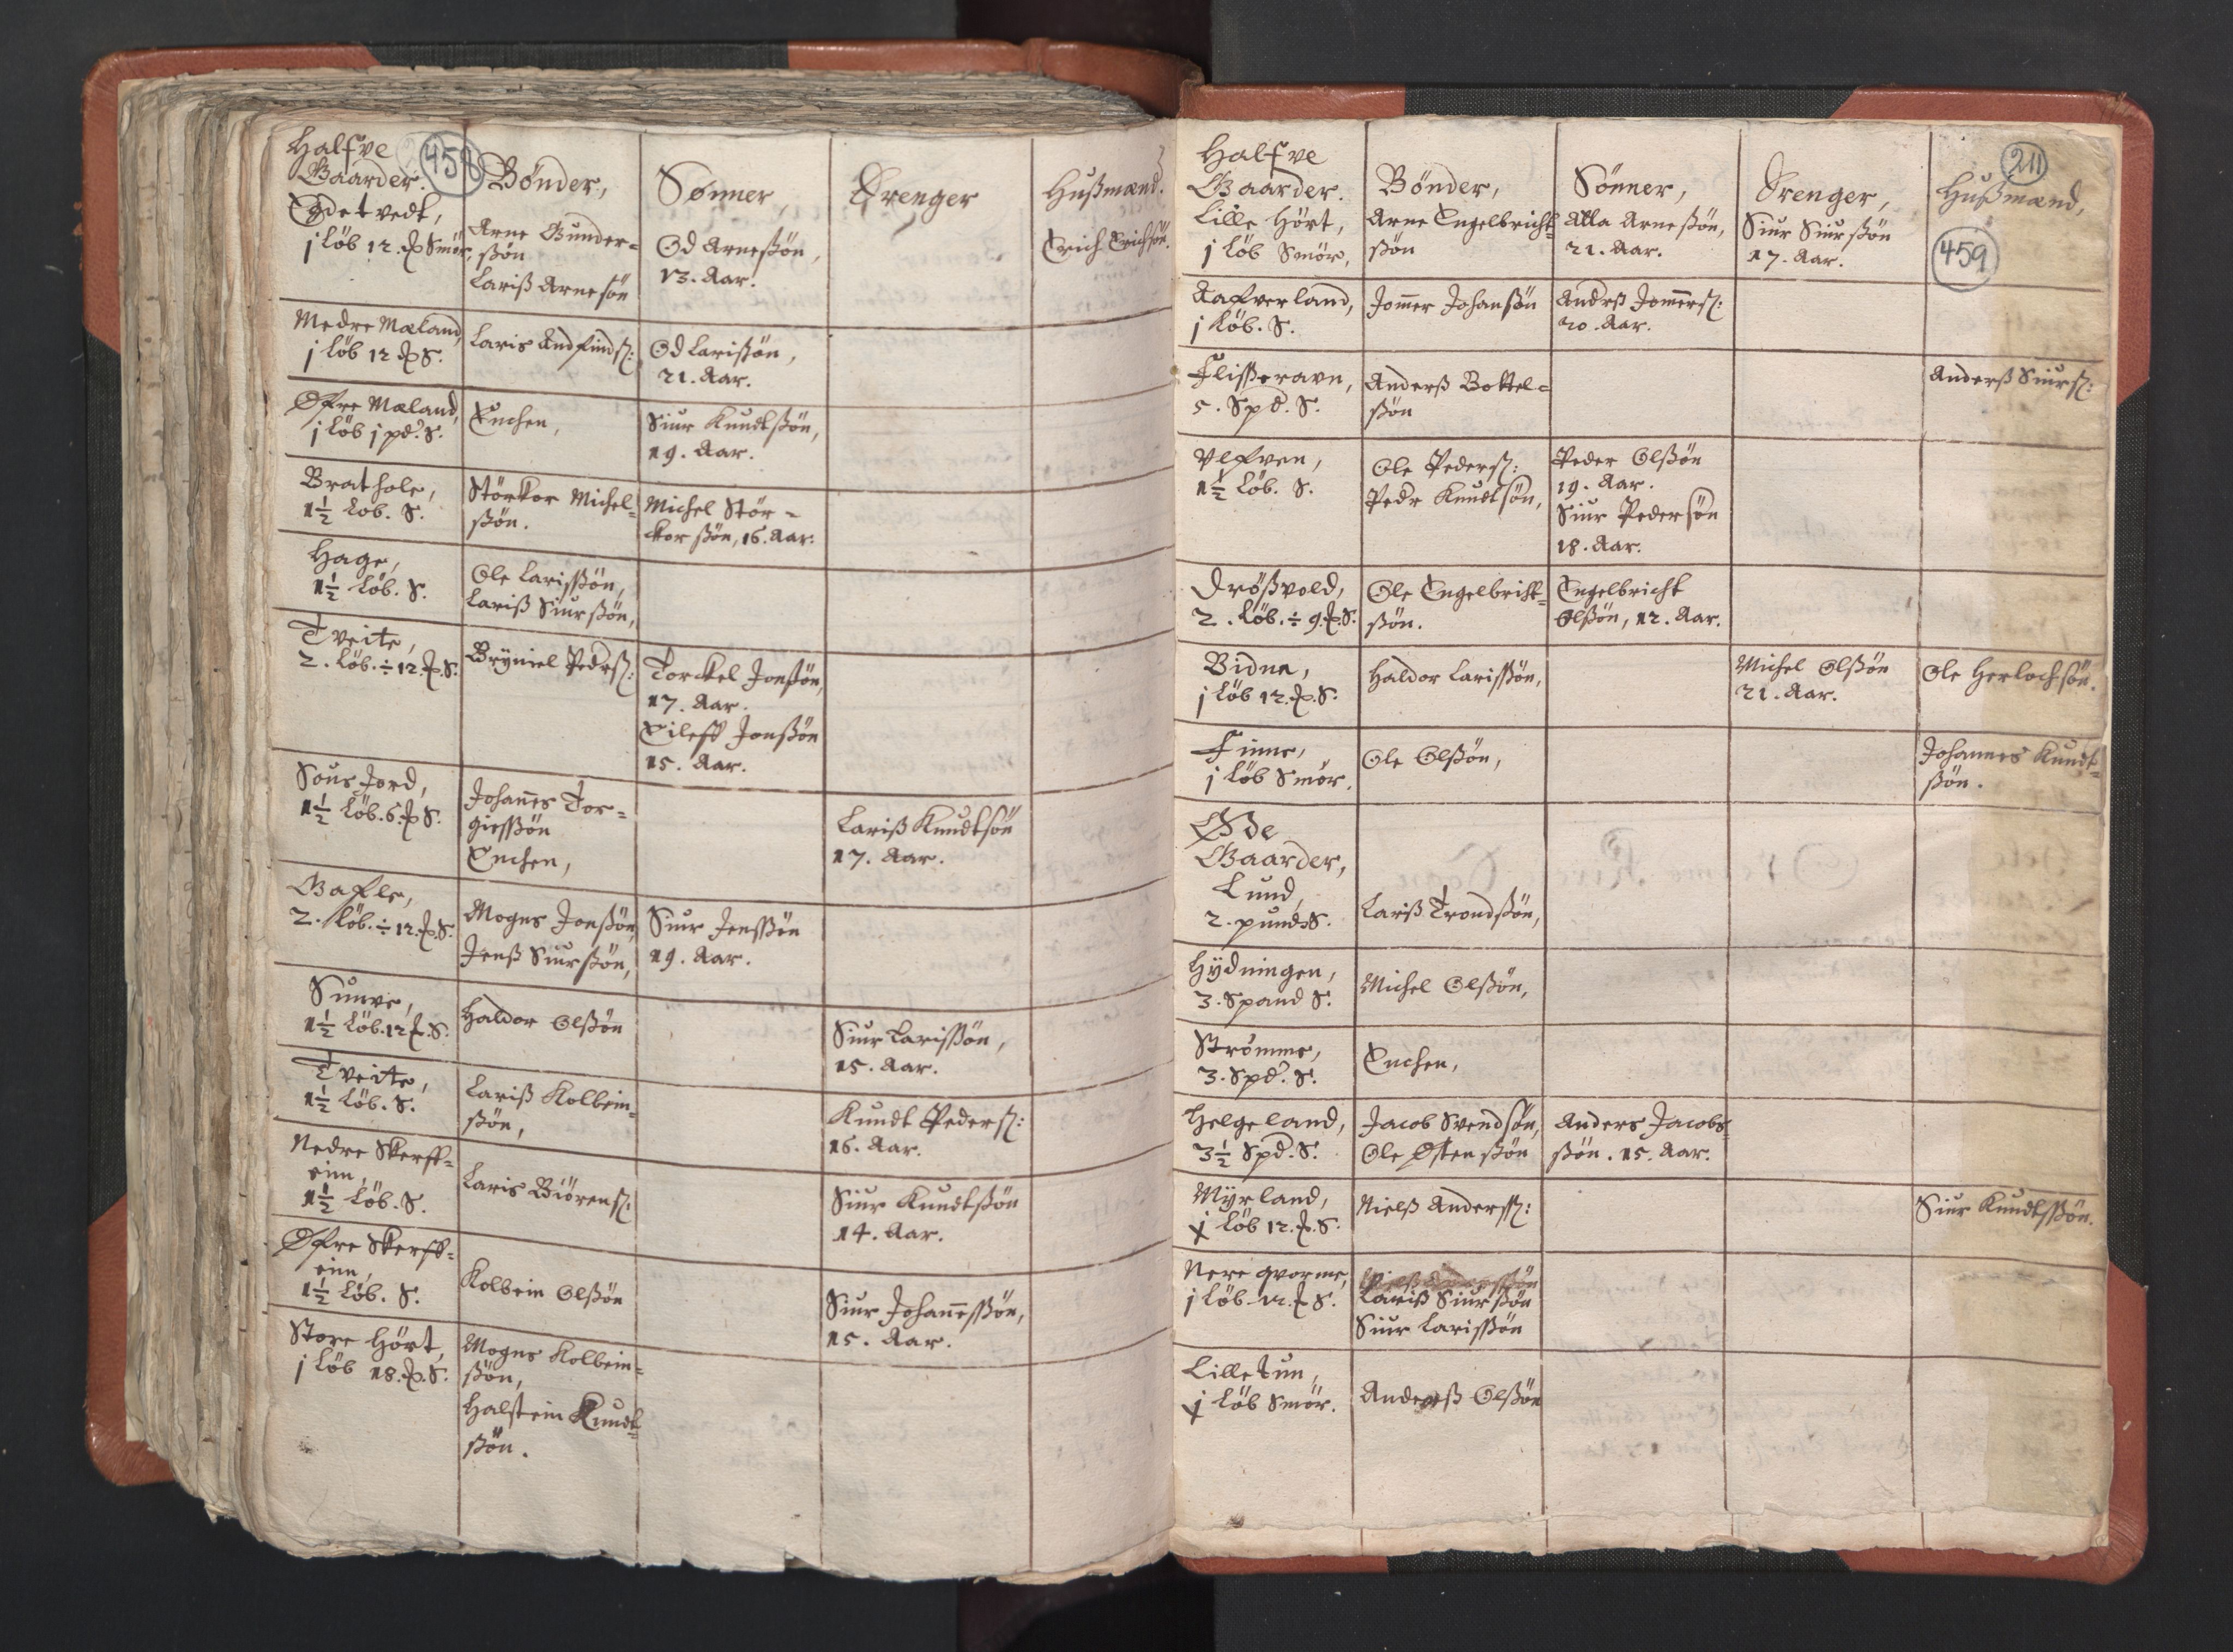 458
Halfve
Gaarder.
Bönder,
Sønner,
Drenger
Hußmænd.
Egdetvedt,
j Löb 12. ℔ Smör,
Arne Gunder=
ßön
Lariß Arnesön
Od Arneßön,
13. Aar.
Erich Erichsön.
Medre Mæland,
j Löb 12 ℔ S.
Laris Andfinds:
Od Larißön,
21. Aar.
Øfre Mæland,
j Löb j pd. S.
Enchen,
Siur Knudtßön,
19. Aar.
Brathole,
1½ Löb. S.
Störkor Michel=
ßön.
Michel Stör=
korßön, 16. Aar:
Hage,
1½ Löb. S.
Ole Larißßön,
Lariß Siurßön,
Tveite,
2. Löb. ÷ 12. ℔. S.
Brÿniel Peders:
Torckel Jonßön,
17. Aar.
Eileff Jonßön
15. Aar.
Sous Jord,
1½ Löb. 6. ℔ S.
Johanes Tor=
gießßön
Enchen,
Lariß Knudtsön
17. Aar.
Gafle,
2. Löb. ÷ 12. ℔. S.
Mogns Jonßön,
Jenß Siurßön,
Siur Jenßßön
19. Aar.
Sunve,
1½ Löb. 12 ℔. S.
Haldor Olßön
Siur Larißßön,
15. Aar.
Tveite,
1½ Löb. S.
Lariß Kolbein=
ßön,
Knudt Peders:
16. Aar.
Nedre Skerff=
einn,
1½ Löb. S.
Laris Biörens:
Siur Knudtßön
14. Aar.
Øfre Skerff=
einn,
1½ Löb. S.
Kolbein Olßön
Siur Johaneßßön,
15. Aar.
Store Hört,
j Löb 18. ℔. S.
Mogns Kolbein=
ßön,
Halstein Knudt=
ßön.
211
459
Halfve
Gaarder.
Bönder,
Sönner,
Drenger,
Hußmænd,
Lille Hört,
j Löb Smör,
Arne Engelbricht=
ßön
Atla Arneßön,
21. Aar.
Siur Siurßön
17. Aar.
Aafverland,
j Löb. S.
Jomer Johanßön
Anderß Jomers:
20. Aar.
Flißeravn,
5. Spd. S.
Anderß Bottel=
ßön
Anderß Siurs:
Ulfven,
1½ Löb. S.
Ole Peders:
Peder Knudtsön,
Peder Olßön
19. Aar.
Siur Pedersön
18. Aar.
Drößvold,
2. Löb. ÷ 9. ℔. S.
Ole Engelbricht=
ßön.
Engelbricht
Olßön, 12. Aar.
Bidne,
j Löb 12. ℔. S.
Haldor Larißßön,
Michel Olßön
21. Aar.
Ole Herlochsön.
Finne,
j Löb Smör.
Ole Olßön,
Johannes Knudt=
ßön.
Øde
Gaarder,
Lund,
2. pund S.
Lariß Trondßön,
Hÿdningen,
3. Spand S.
Michel Olßön,
Strömme,
3. Spd. S.
Enchen,
Helgeland,
3½ Spd. S.
Jacob Svendsön,
Ole Østenßön
Anders Jacobs=
ßön. 15. Aar.
Mÿrland,
j Löb 12. ℔. S.
Nielß Anderss:
Siur Knudtßßön.
Nere qvorme,
j Löb. 12. ℔ S.
Lariß Siurßön
Siur Larißßön
Lilletun,
j Löb Smör.
Anderß Olßön